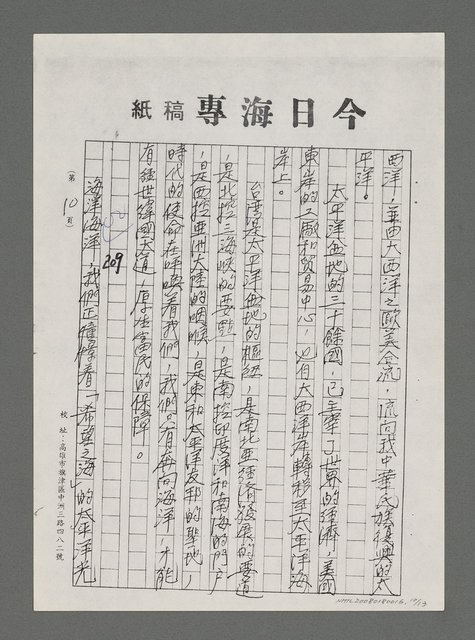 今日海專稿紙
西洋，並由大西洋之歐美合流，流向我中華民族復興的太
平洋。
太平洋盆地的三十餘國，已主宰了世界的經濟，美國
東岸的工廠和貿易中心，也自大西洋岸轉移至太平洋海
岸上。
台灣是太平洋盆地的樞紐，是南北亞經濟發展的要道
，是北控三海峽的要點，是南控印度洋和南海的門戶
，是西控亞洲大陸的咽喉，是東和太平洋友邦的聖地，
時代的使命在呼喚着我們，我們只有奔向海洋，才能
有經世緯國大道，厚生富民的保障。
209
海洋海洋，我們正憧憬着「希望之海」的太平洋光
（第10頁）
校址：高雄市旗津區中洲三路四八二號
NMTL20080180016, 10/13